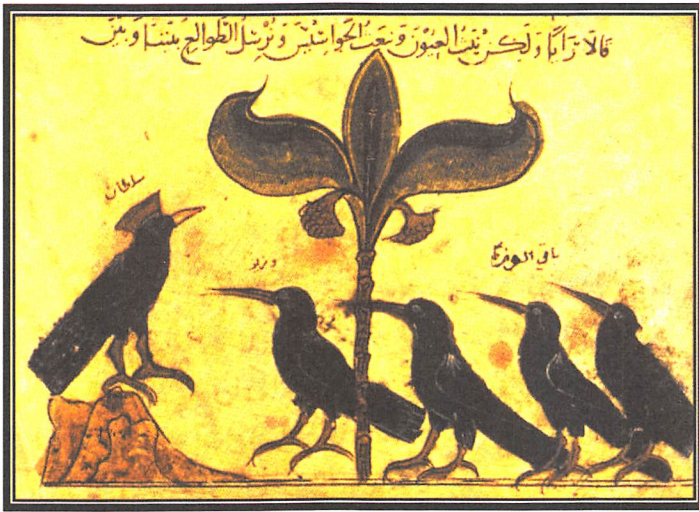 قالا نرا يا ولكن نبث العيون ونبعث الجواسيس ونرسل الطوالع بيننا وبين
سلطان
وزير
باقي الوزرا